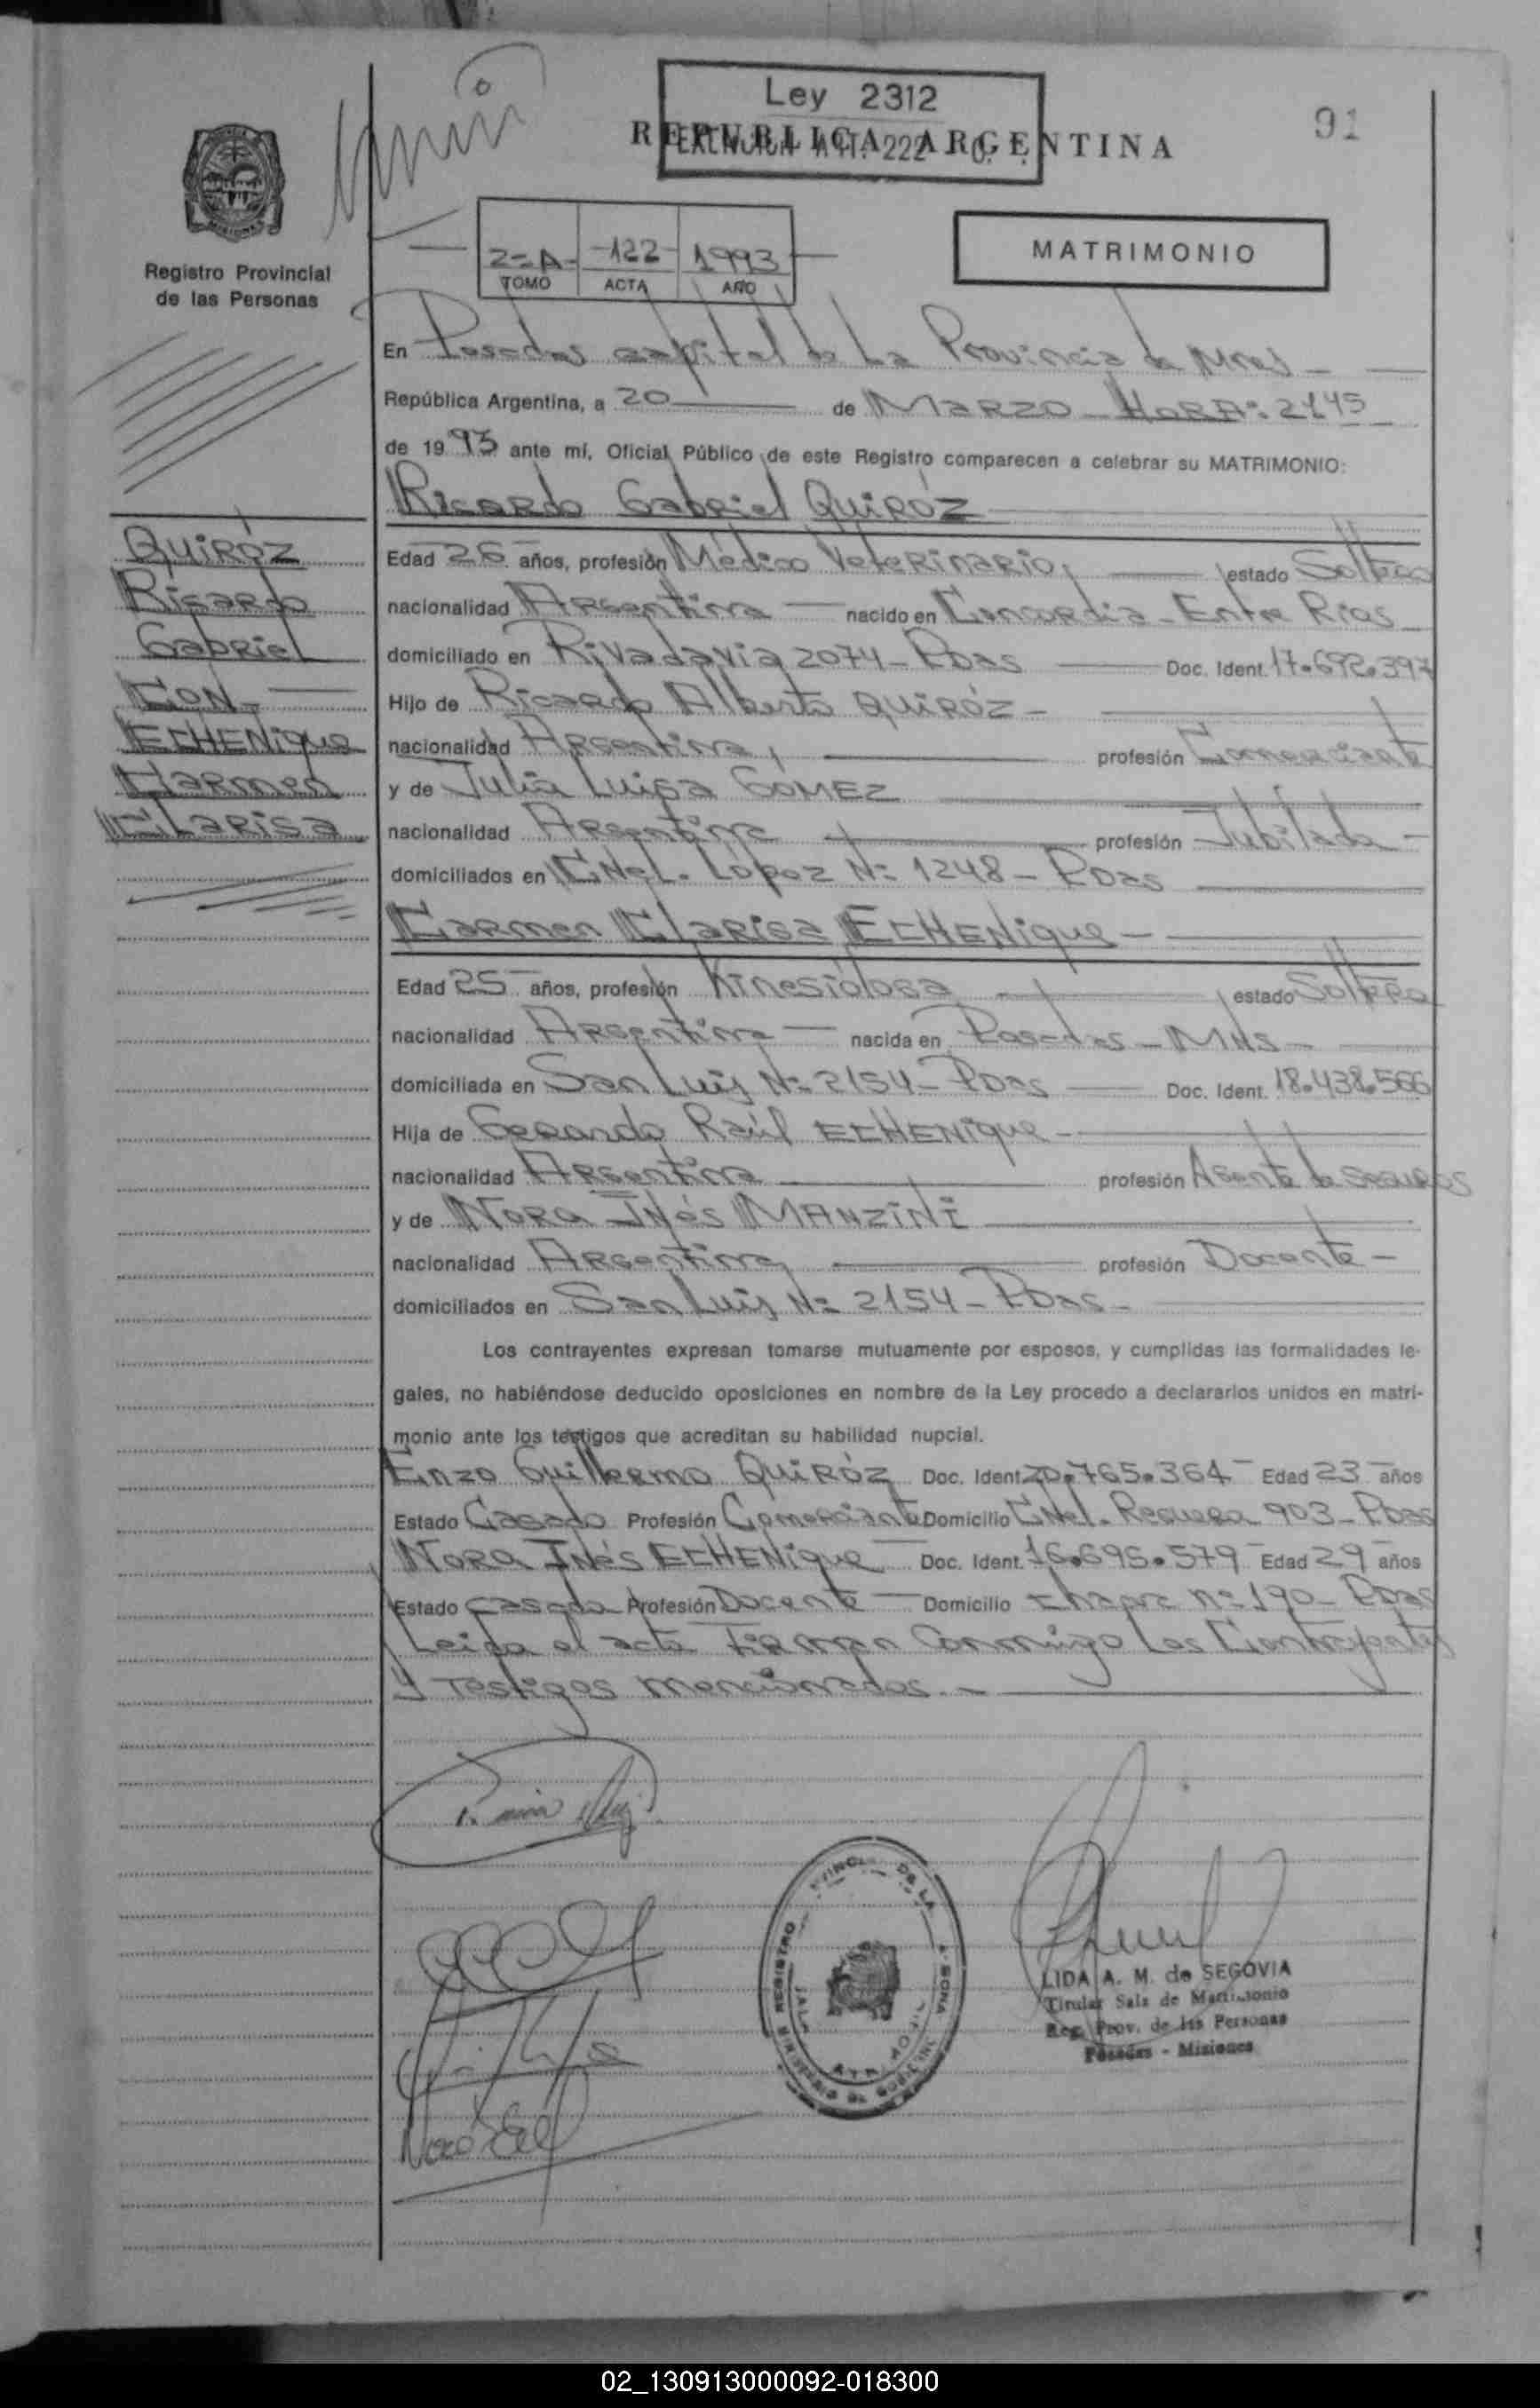 Ley 2312
REPUBLICA ARGENTINA
91
Registro Provincial
de las Personas
2=A- -122- 1993
TOMO ACTA AÑO
MATRIMONIO
En Posadas capital de La Provincia de Mnes
República Argentina, a 20 de Marzo HORA: 21 45
de 1993 ante mí, Oficial Público de este Registro comparecen a celebrar su MATRIMONIO:
Ricardo Gabriel QUIRÓZ
QUIRÓZ
Ricardo
Gabriel
CON
ECHENique
Carmen
Clarisa
Edad 26 años, profesión Médico Veterinario, estado Soltero
nacionalidad Argentina nacido en Concordia - Entre Rios
domiciliado en Rivadavia 2074 - Pdas Doc. Ident. 17.692.397
Hijo de Ricardo Alberto QUIRÓZ -
nacionalidad Argentina, profesión Comerciante
y de Julia Luisa GOMEZ
nacionalidad Argentina profesión Jubilada -
domiciliados en CNel. López Nº 1248 - Pdas
Carmen Clarisa ECHENique -
Edad 25 años, profesión Kinesióloga estado Soltera
nacionalidad Argentina nacida en Posadas - MNS -
domiciliada en San Luis Nº 2154 - Pdas Doc. Ident. 18.438.566
Hija de Gerardo Raúl ECHENique -
nacionalidad Argentina profesión Agente de seguros
y de Nora Inés MANZINI
nacionalidad Argentina profesión Docente -
domiciliados en San Luis Nº 2154 - Pdas -
Los contrayentes expresan tomarse mutuamente por esposos, y cumplidas las formalidades le-
gales, no habiéndose deducido oposiciones en nombre de la Ley procedo a declararlos unidos en matri-
monio ante los testigos que acreditan su habilidad nupcial.
Enzo Guillermo QUIRÓZ Doc. Ident. 20.765.364 Edad 23 años
Estado Casado Profesión Comerciante Domicilio CNel. Reguera 903 - Pdas
Nora Inés ECHENique Doc. Ident. 16.695.579 Edad 29 años
Estado Casada Profesión Docente Domicilio Nº 190 - Pdas
Leida el acta Firman Conmigo Los Contrayentes
y Testigos mencionados. -
LIDA A. M. de SEGOVIA
Titular Sala de Matrimonio
Reg. Prov. de las Personas
Posadas - Misiones
02_130913000092-018300